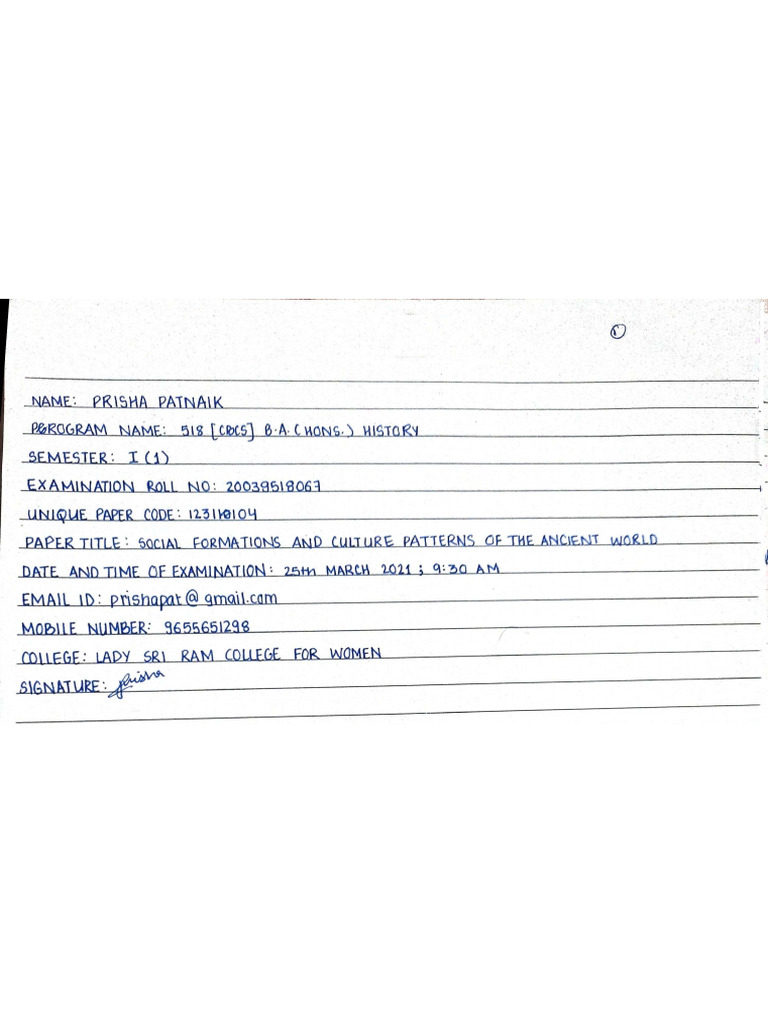 1
NAME: PRISHA PATNAIK
PROGRAM NAME: 518 [CBCS] B.A. (HONS.) HISTORY
SEMESTER: I (1)
EXAMINATION ROLL NO: 20039518067
UNIQUE PAPER CODE:
PAPER TITLE: SOCIAL FORMATIONS AND CULTURE PATTERNS OF THE ANCIENT WORLD
DATE AND TIME OF EXAMINATION: 25th MARCH 2021 ; 9:30 AM
EMAIL ID: prishapat@gmail.com
MOBILE NUMBER: 9655651298
COLLEGE: LADY SRI RAM COLLEGE FOR WOMEN
SIGNATURE: Prisha